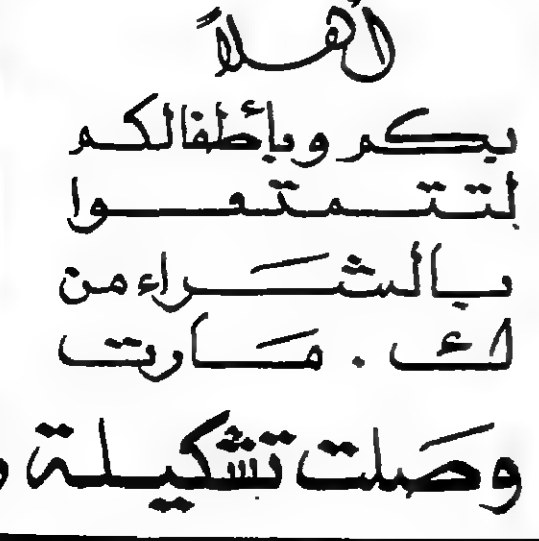 أهلاً
بكم وبأطفالكم
لتتمتعوا
بالشَراء من
ك . مَارت
وصَلت تشكيلة